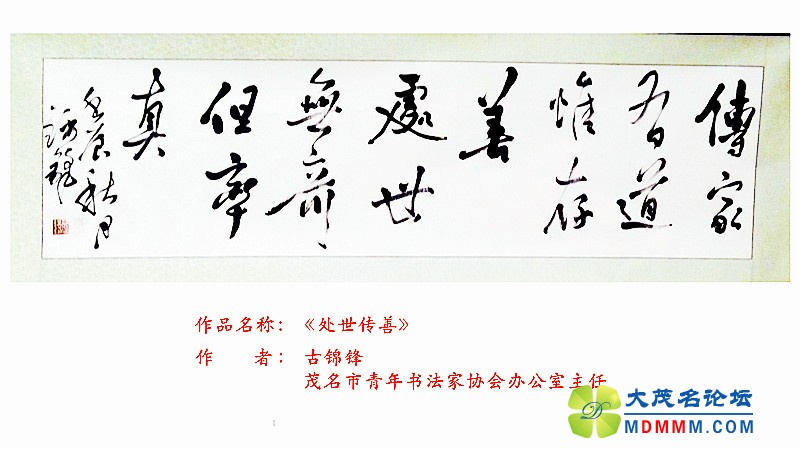 傳家
有道
惟存
善
處世
無奇
但率
真
壬辰秋月
作品名称：《处世传善》
作 者：古锦锋
茂名市青年书法家协会办公室主任
大茂名论坛
MDMMM.COM